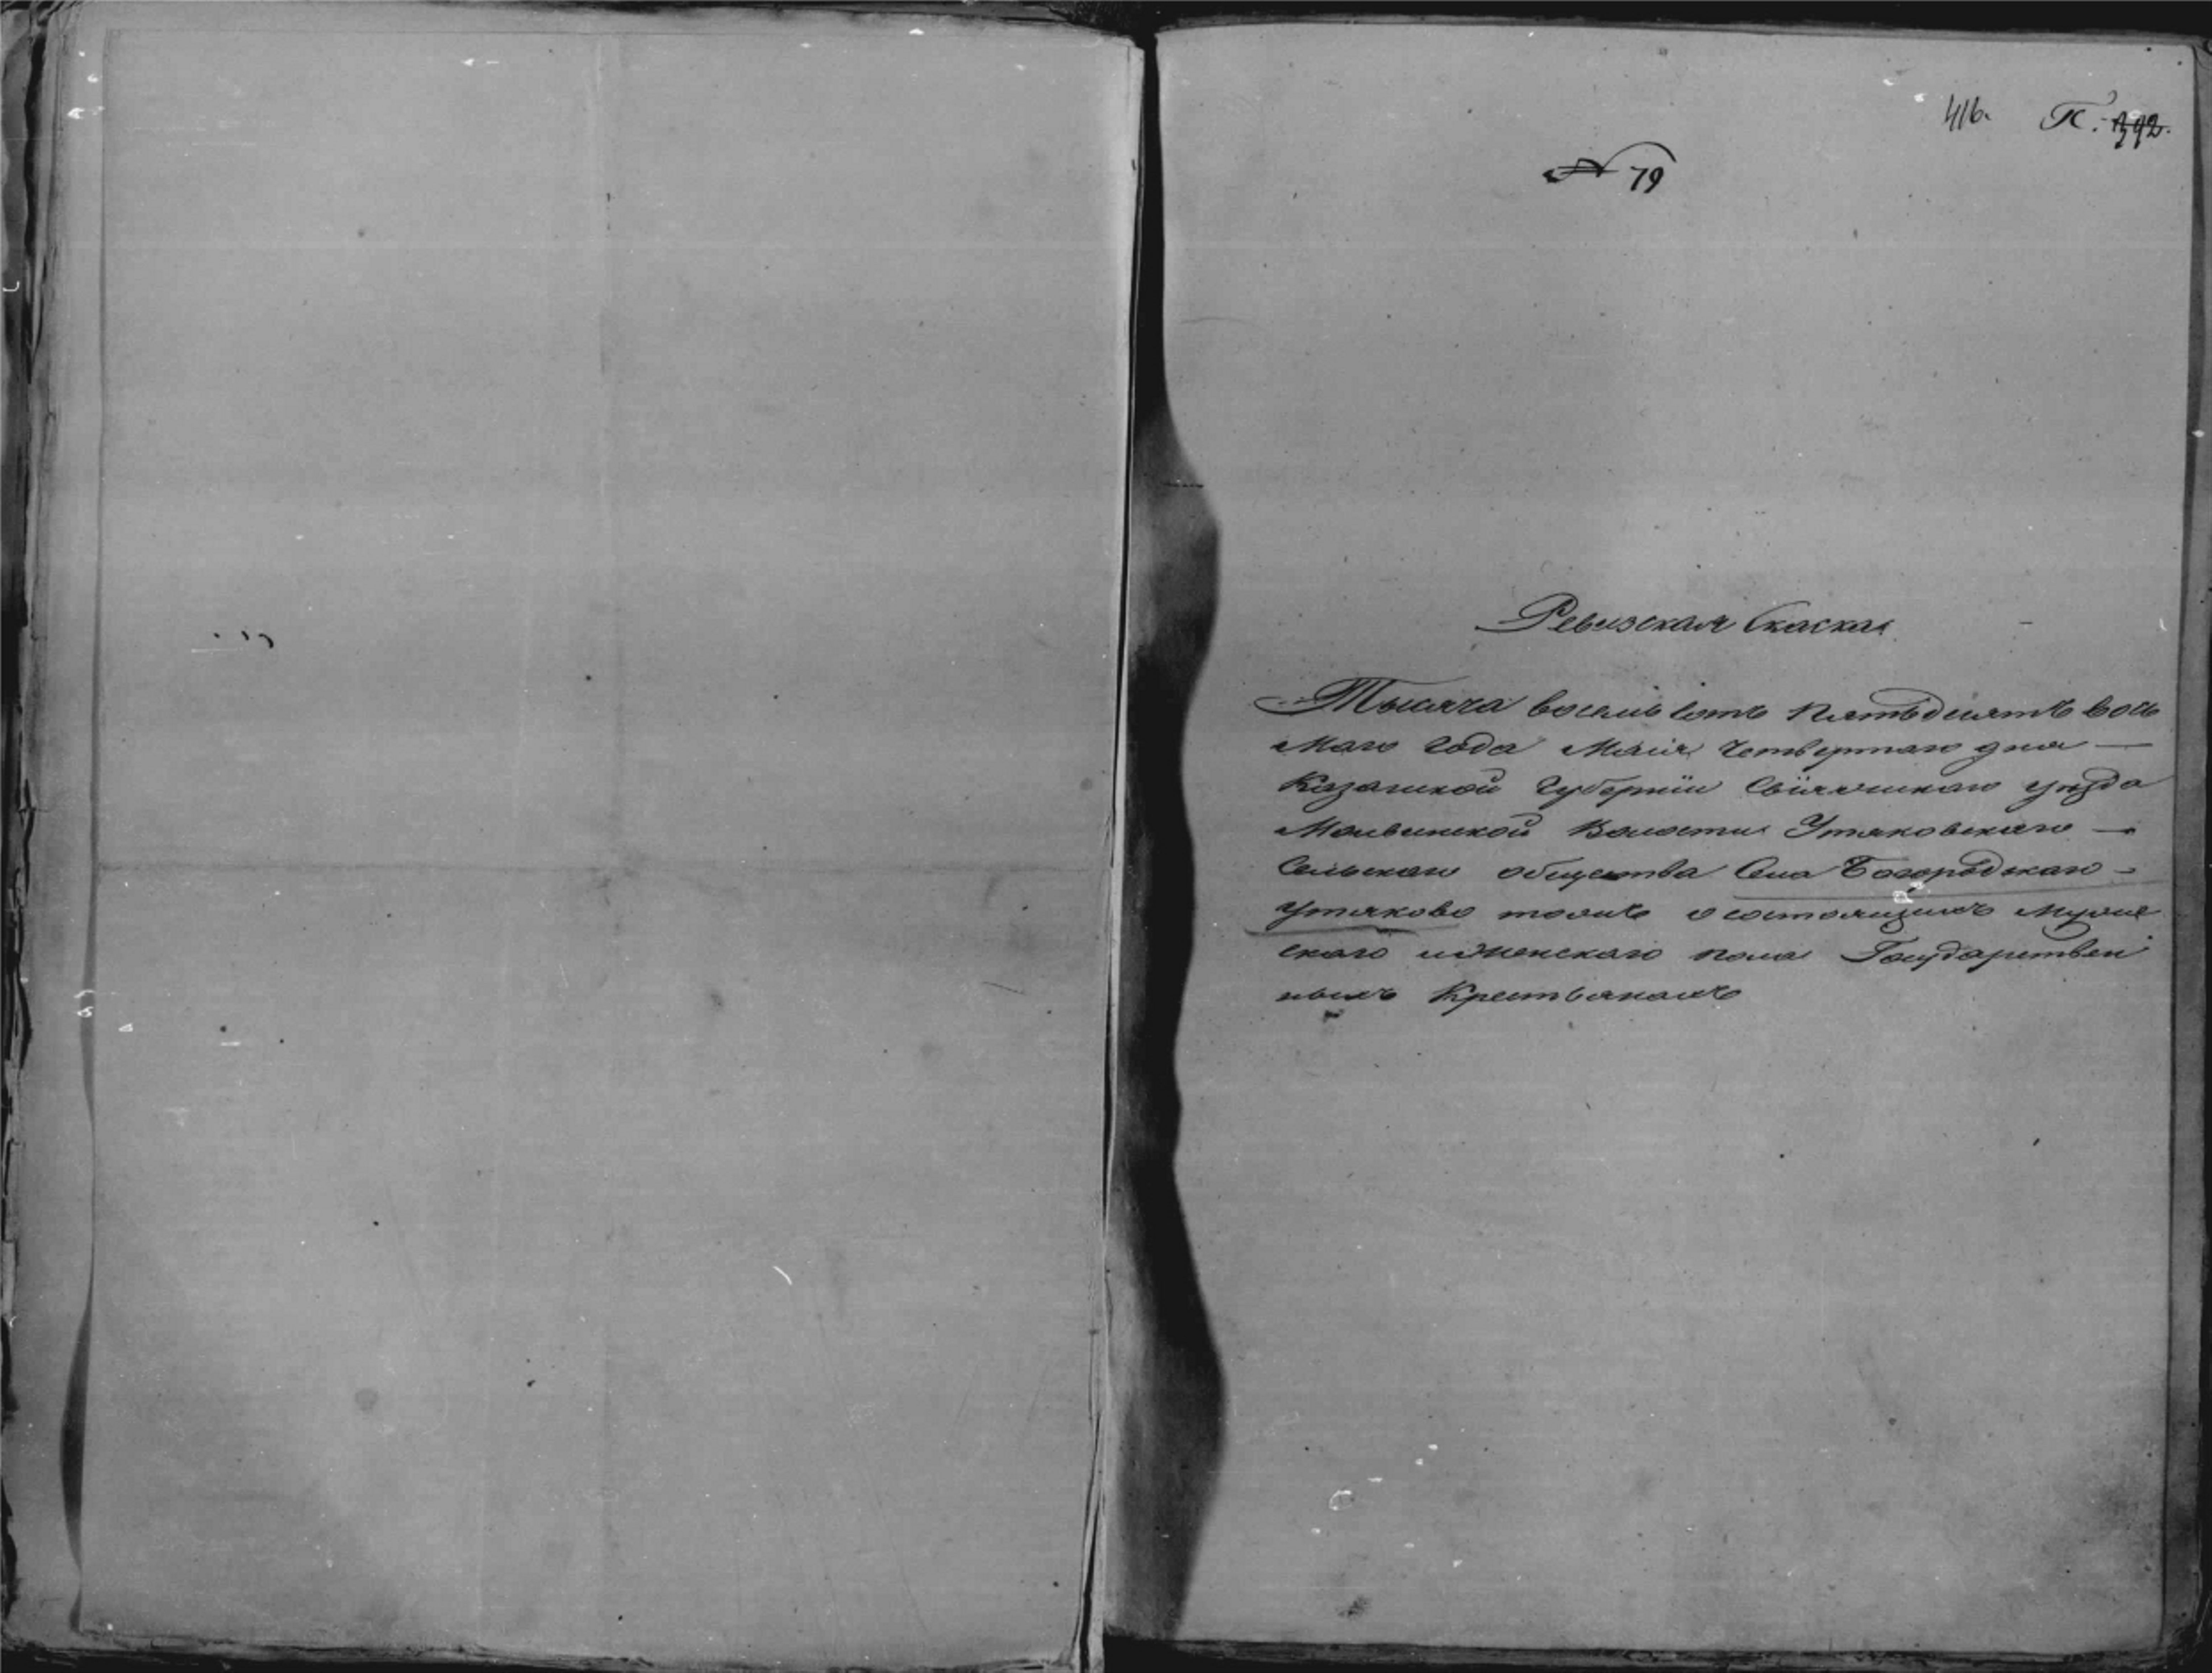 416. К. 392.
№ 79
Ревизская Скаска
Тысяча восемь сотъ пятьдесятъ вось
маго года Маія четвертаго дня —
Казанской Губерніи Свіяжскаго уѣзда
Молвинской Волости Утяковскаго —
Сельскаго общества Села Богородскаго -
Утяково тожъ о состоящихъ мужес
скаго и женскаго пола Государствен
ныхъ Крестьянахъ